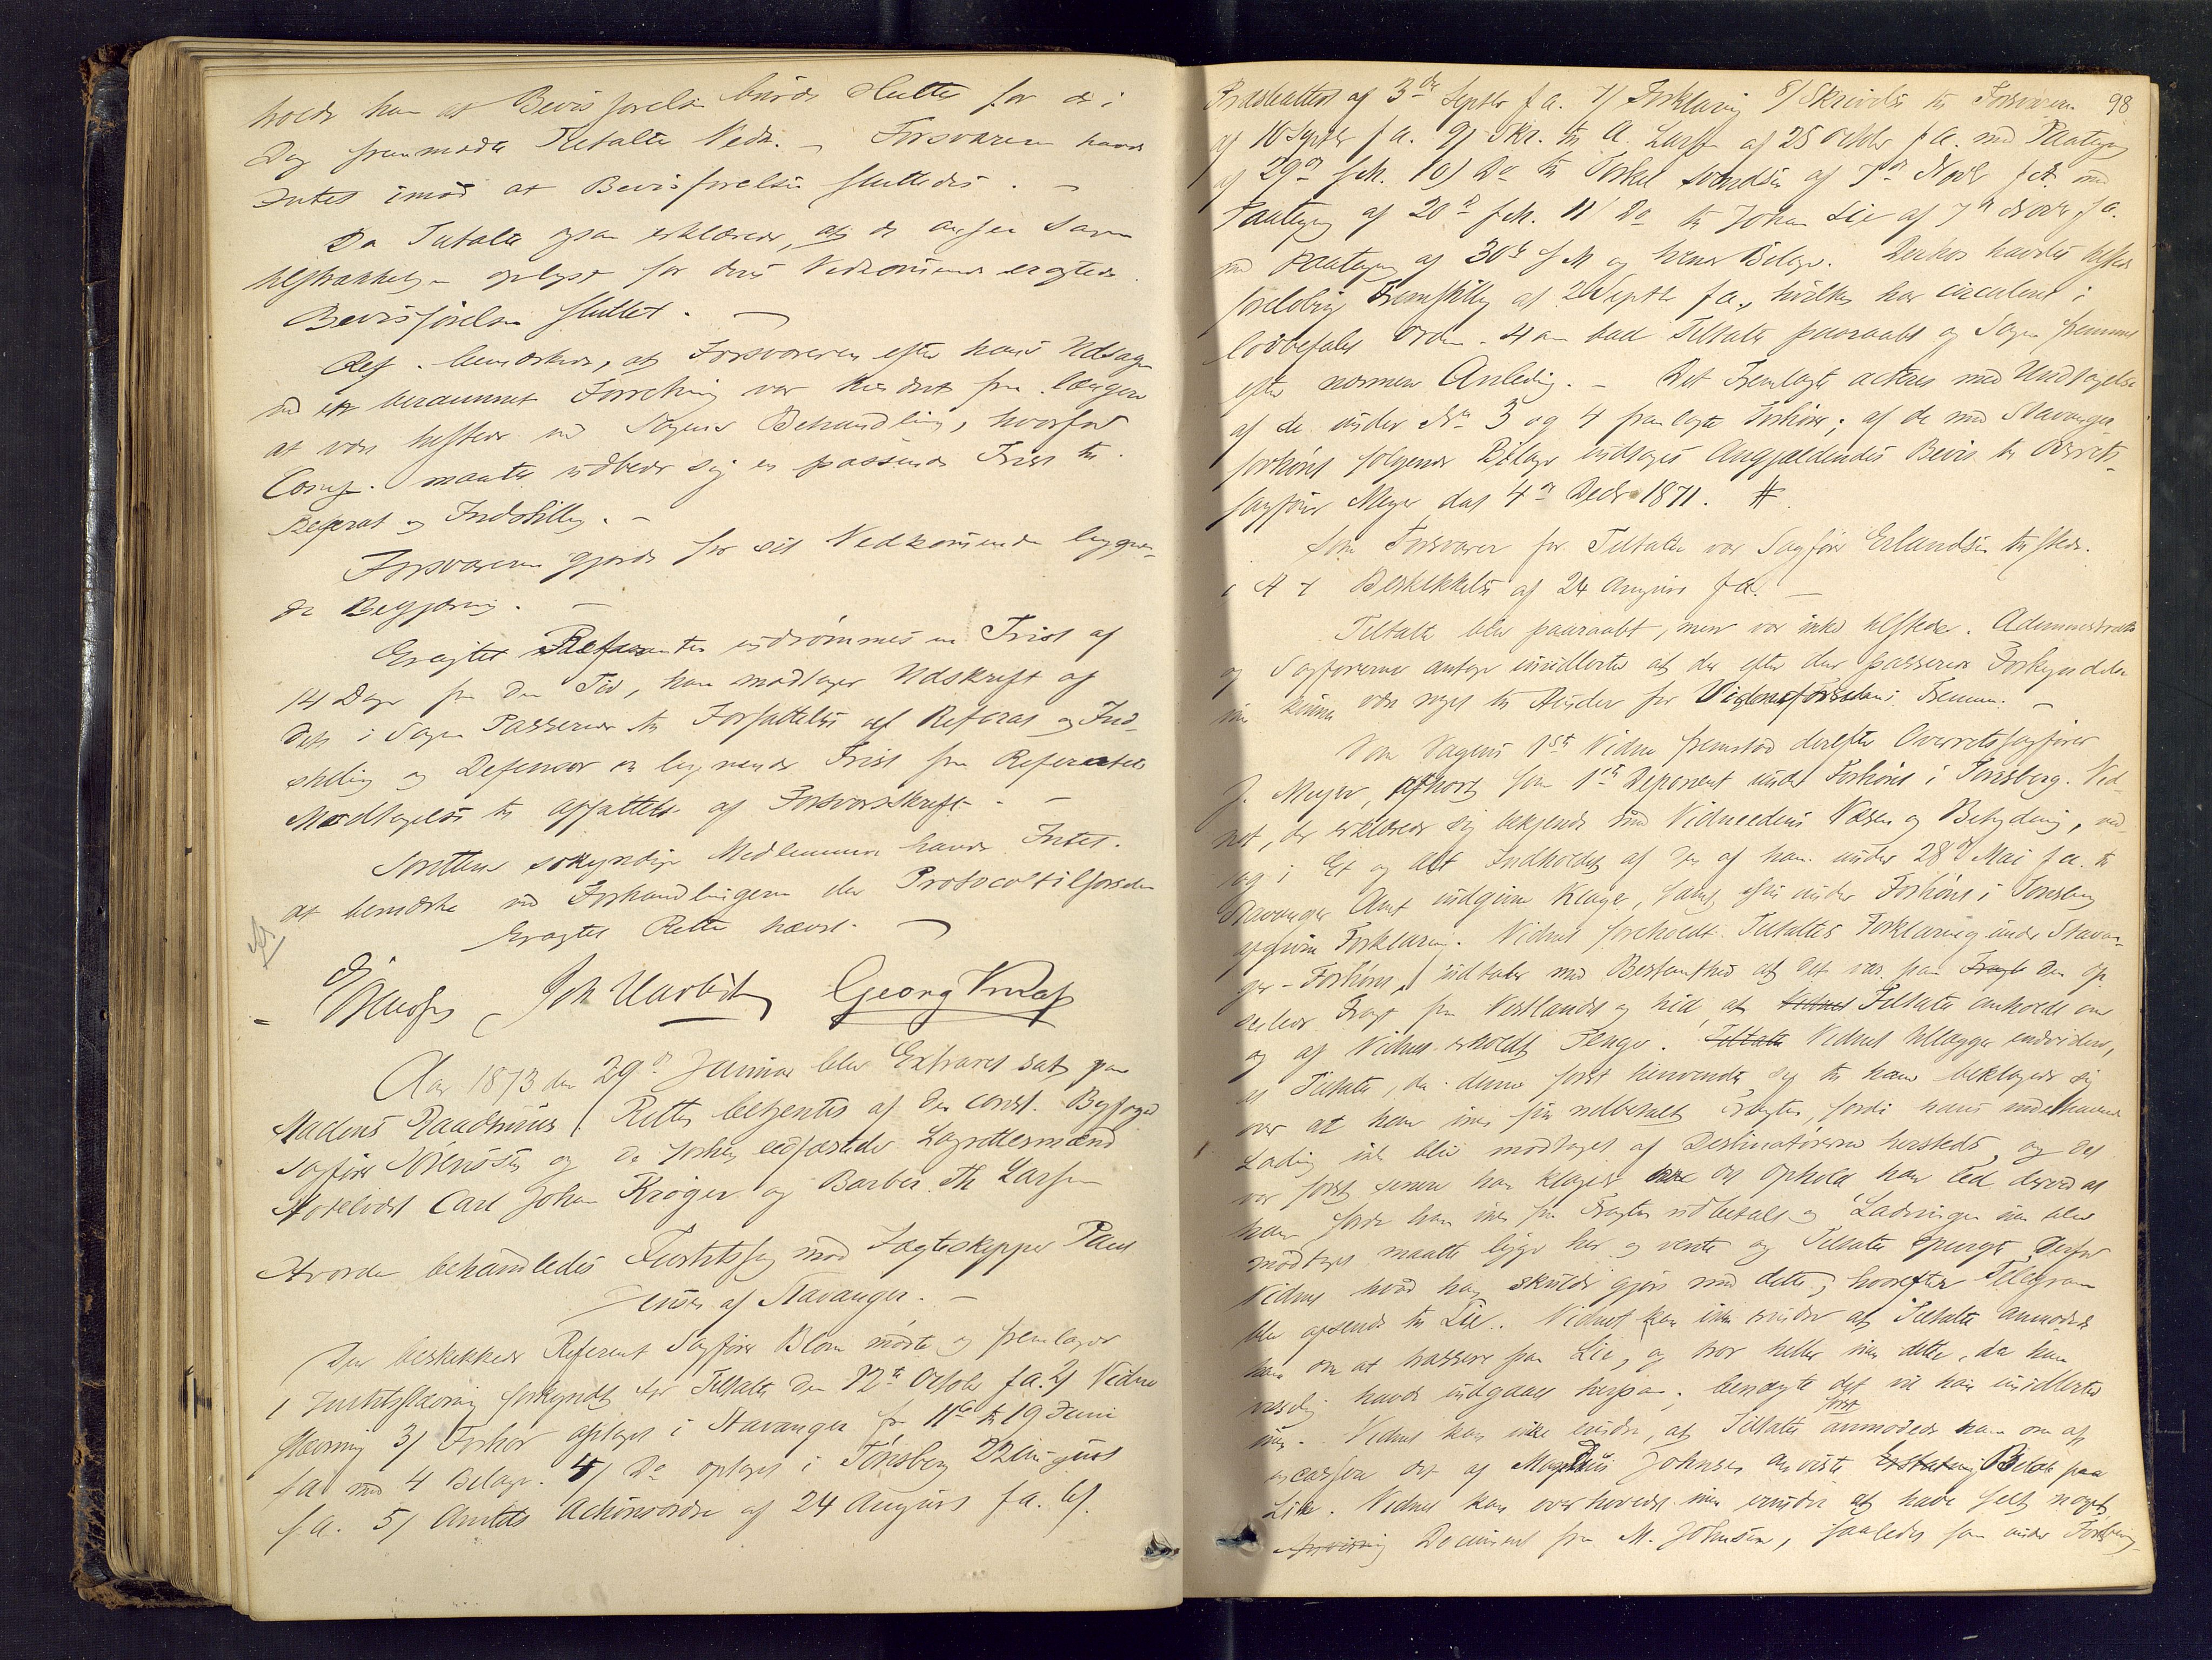 holdt han at Bevisførelsen burde sluttes for de i
Dag fremmødte Tiltaltes Vedk. – Forsvareren havde
Intet imod at Bevisførelsen sluttedes. –
Da Tiltalte ogsaa erklærede, at de ansee Sagen
tilstrækkelig oplyst for deres Vedkommende eragtedes
Bevisførelsen sluttet. –
Ref. bemærkede, at Forsvareren efter hans Udsagn
ved en berammet Forretning var hindret fra længere
at være tilstede ved Sagens Behandling, hvorfor
Comp. maatte udbede sig en passende Frist til
Referat og Indstilling. –
Forsvareren gjorde for sit Vedkommende lignen-
de Begjæring. –
Eragtet Referenten indrømmes en Frist af
14 Dage fra den Tid, han modtager Udskrift af
det i Sagen Passerede til Forfattelse af Referat og Ind-
stilling og Defensor en lignende Frist fra Referatets
Modtagelse til Affattelse af Forsvarsskrift. –
Rettens søkyndige Medlemmer havde Intet
at bemærke ved Forhandlingerne eller Protocoltilførselen
Eragtet Retten hævet. –
Georg Knap
Aar 1873 den 29de Januar blev Extraret sat paa
Stadens Raadhuus. Retten betjentes af den const. Byfoged
Sagfører Sørensen og de forhen edfæstede Lagrettesmænd
Hotelvert Carl Johan Krøger og Barber Th Larsen
Hvorda behandledes Justitssag mod Jagteskipper Paul
Jensen af Stavanger. –
Den beskikkede Referent Sagfører Blom mødte og fremlagde
1 Justitsstævning forkyndt for Tiltalte den 12te October f.a. 2) Vidne
stævning 3) Forhør optaget i Stavanger fra 11te til 19 Juni
f.a. med 4 Bilage. 4) Do optaget i Tønsberg 22 August
f.a. 5) Amtets Actionsordre af 24 August f.a. 6)
98
Præsteattest af 3de Septbr f.a. 7) Forklaring 8) Skrivelse til Forsvareren
af 10 Septbr f.a. 9) Skr. til A. Larsen af 25 October f.a. med Paategn.
af 29de s.M. 10) Do til Torkel Svendsen af 7de Novbr f.A. med
Paategn. af 20de s.M. 11) Do til Johan Lie af 7de Novbr f.a.
med Paategn. af 30te s.M. og hans Bilage. Derhos havdes tilstede
foreløbig Fremstilling af 2 Septbr f.a., hvilken har circuleret i
lovbefalet Orden. Han bad Tiltalte paaraabt og Sagen fremmet
efter nærmere Anledning. – Det Fremlagte acteres med Undtagelse
af de under No 3 og 4 fremlagte Forhører; af de med Stavanger
forhøret følgende Bilage indtages Angjældendes Bevis til Overrets-
sagfører Meyer dat 4de Decbr 1871. #.
Som Forsvarer for Tiltalte var Sagfører Erlandsen tilstede.
Beskikkelse af 24 August f.a. –
Tiltalte blev paaraabt, men var ikke tilstede. Administrator
og Sagførerne antog imidlertid at der efter den passerede Forkyndelse
ikke kunne være noget til Hinder for Vidneførselens Fremme. –
Som Sagens 1ste Vidne fremstod derefter Overretssagfører
J. Meyer, afhørt som 1ste Deponent under Forhøret i Tønsberg. Vid-
net, der erklærede sig bekjendt med Vidneedens Væsen og Betydning, ved-
tog i Et og alt Indholdet af den af ham under 28de Mai f.a. til
Stavanger Amt indgivne Klage, samt sin under Forhøret i Tønsberg
afgivne Forklaring. Vidnet foreholdt Tiltaltes Forklaring under Stavan-
ger-Forhøret, udtaler med Bestemthed at det var paa den op-
seilede Fragt fra Vestlandet og hid, at Tiltalte anholdt om
og af Vidnet erholdt Penge. Vidnet tillægger endvidere,
at Tiltalte, da denne først henvendte sig til ham beklagede sig
over at han ikke fik udbetalt Fragten, fordi hans indehavende
Ladning ikke blev modtaget af Destinatørerne herstedet, og det
var først senere han klaget over det Ophold han led derved at
han fordi han ikke fik Fragten udbetalt og Ladningen ikke blev
modtaget maatte ligge her og vente og Tiltalte spurgte derfor
Vidnet hvad han skulde gjøre med dette, hvorefter Telegram
blev afsendt til Lie. Vidnet kan ikke erindre at Tiltalte anmodede
ham om at trassere paa Lie, og tror heller ikke dette, da han
vanskelig havde indgaaet herpaa; benægte det vil han imidlertid
ikke. Vidnet kan ikke erindre, at Tiltalte først anmodede ham om at
incassere det af Magnus Johnsen anviste Beløb paa
Lie. Vidnet kan overhovedet ikke erindre at have seet noget
Document fra M. Johnsen, saaledes som under Forklaring